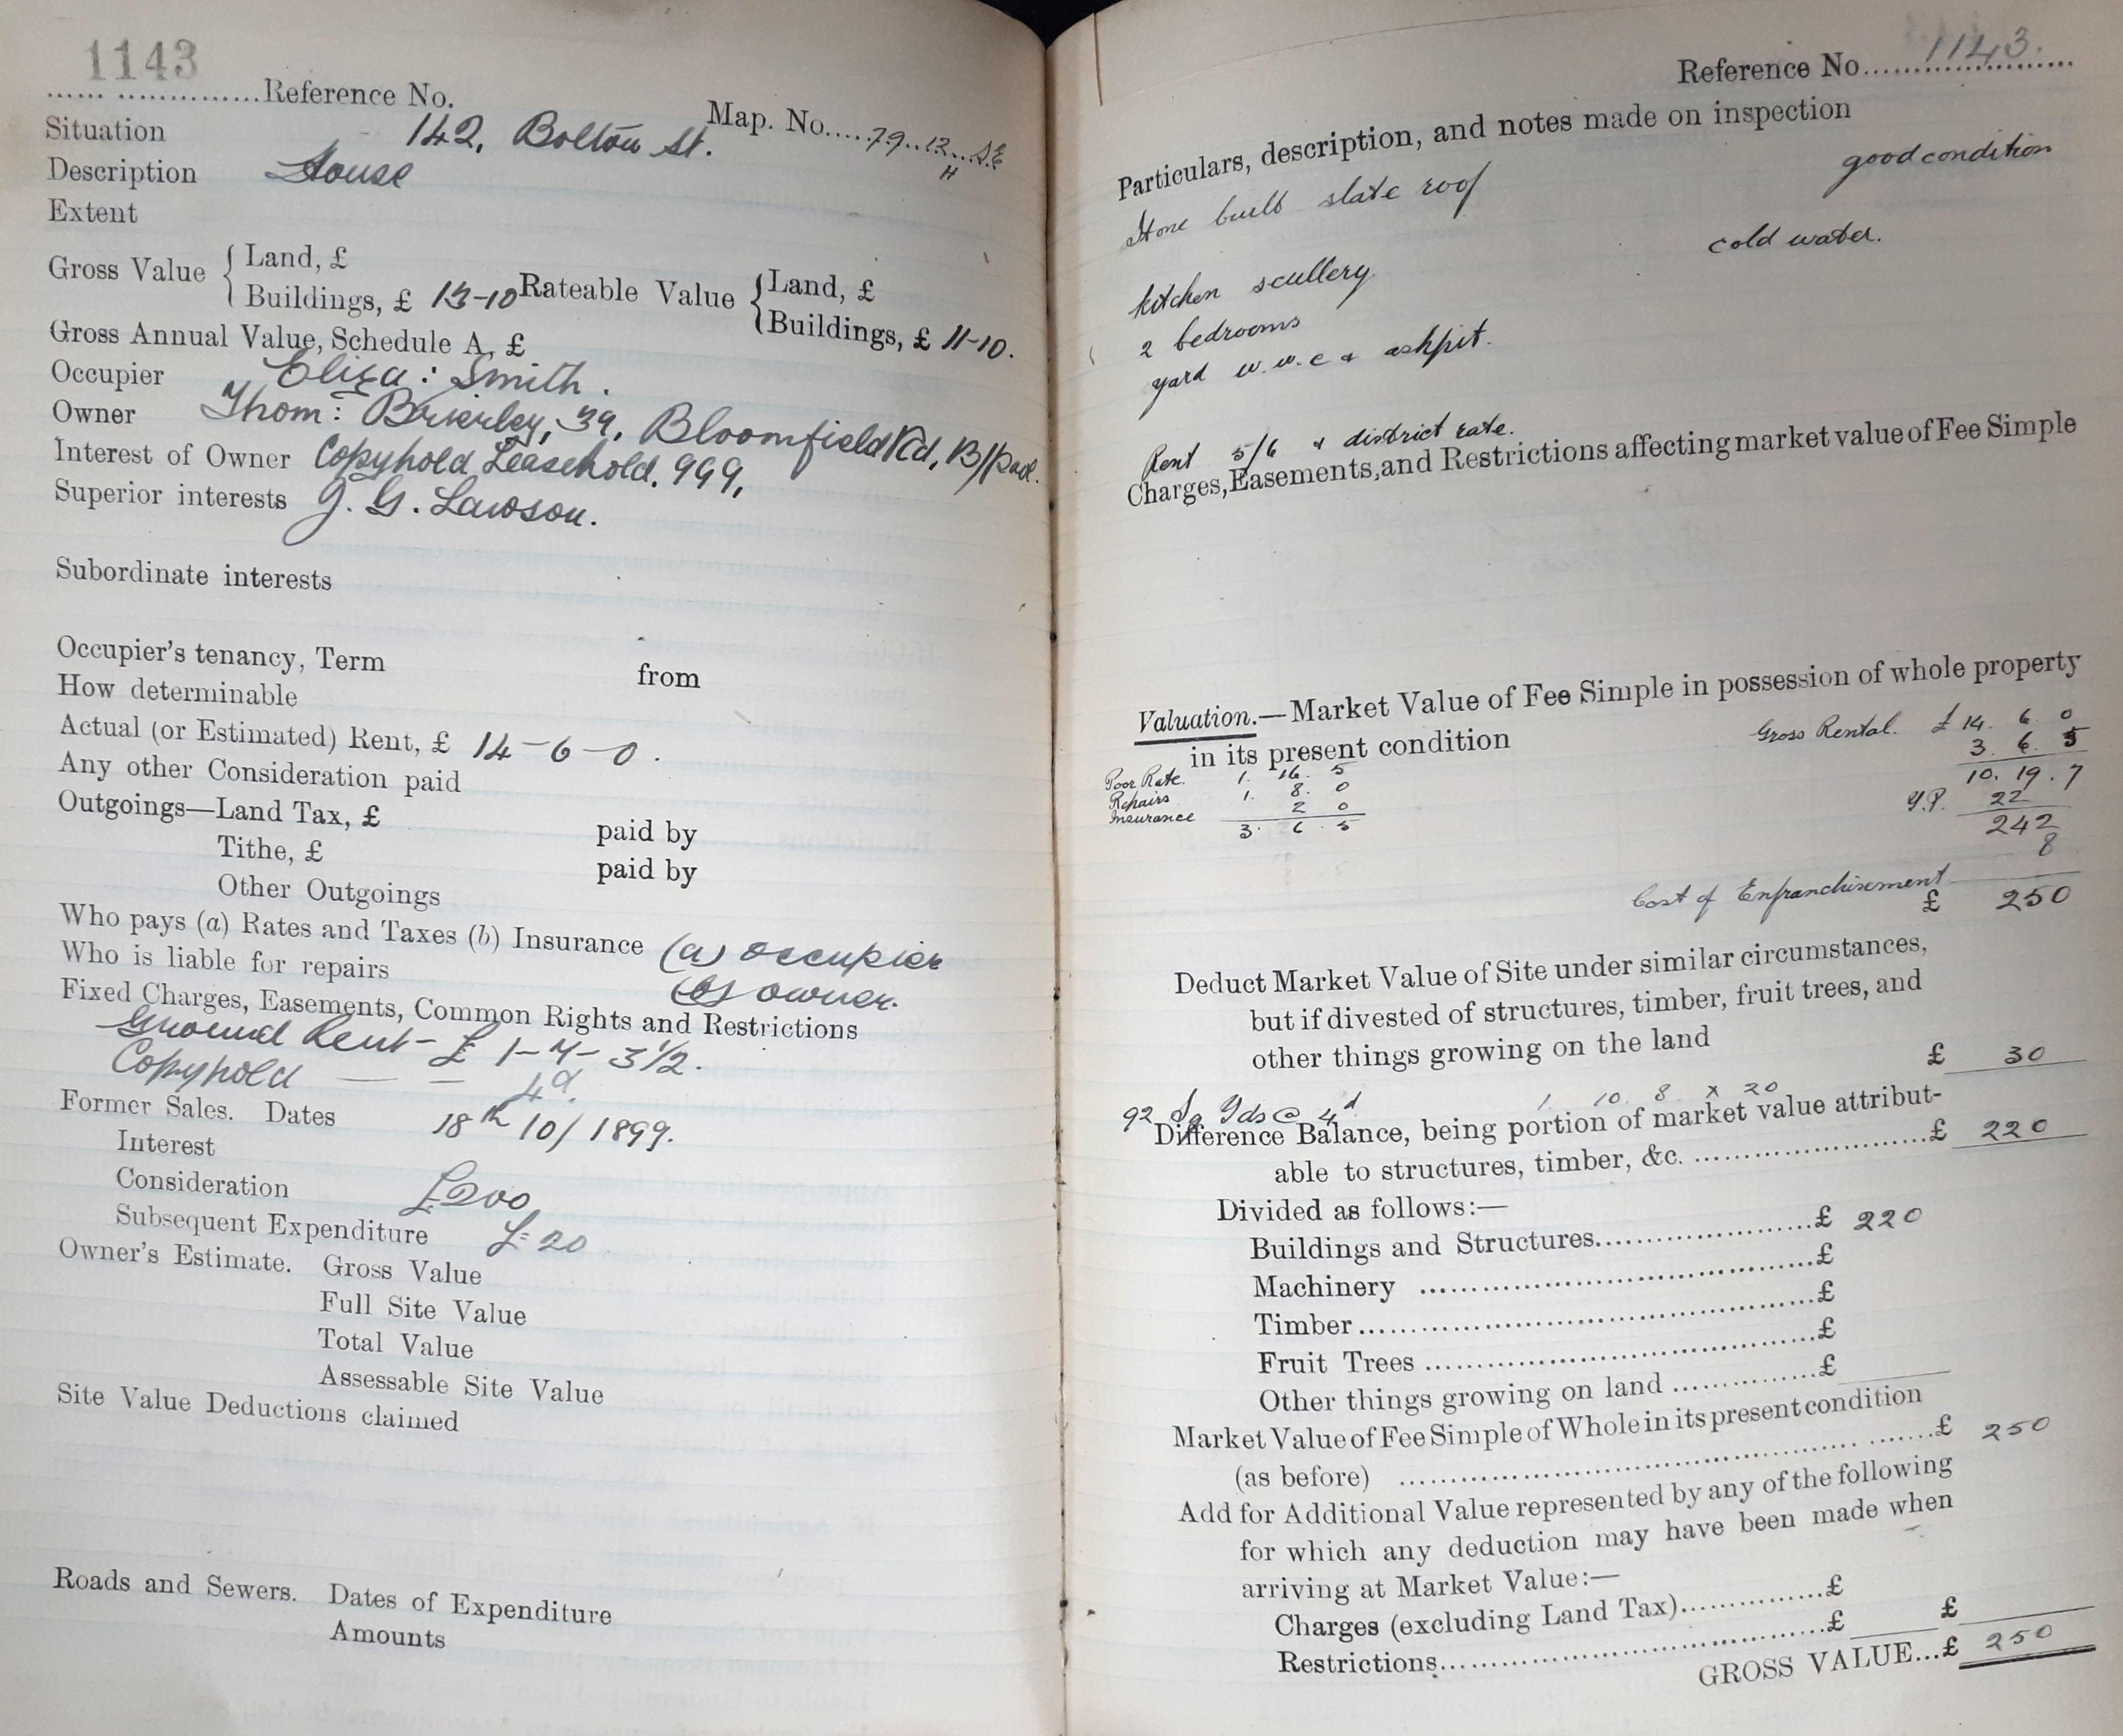 1143
...... ..............Reference No.
Map. No.....79..12...S.E
H
Situation 142, Bolton St.
Description House
Extent
Gross Value { Land, £
Buildings, £ 13-10 Rateable Value { Land, £
Buildings, £ 11-10.
Gross Annual Value, Schedule A, £
Occupier Eliza: Smith.
Owner Thom: Brierley, 39, Bloomfield Rd, B/pool.
Interest of Owner Copyhold Leasehold. 999,
Superior interests J. G. Lawson.
Subordinate interests
Occupier's tenancy, Term from
How determinable
Actual (or Estimated) Rent, £ 14-6-0.
Any other Consideration paid
Outgoings—Land Tax, £ paid by
Tithe, £ paid by
Other Outgoings
Who pays (a) Rates and Taxes (b) Insurance (a) occupier
Who is liable for repairs (b) owner.
Fixed Charges, Easements, Common Rights and Restrictions
Ground Rent - £ 1-4-3½.
Copyhold — — 4d.
Former Sales. Dates 18th/10/1899.
Interest
Consideration £200
Subsequent Expenditure £20
Owner's Estimate. Gross Value
Full Site Value
Total Value
Assessable Site Value
Site Value Deductions claimed
Roads and Sewers. Dates of Expenditure
Amounts
Reference No. 1143.
Particulars, description, and notes made on inspection
Stone built slate roof good condition
kitchen scullery cold water.
2 bedrooms
yard w.w.c & ashpit.
Rent 5/6 & district rate.
Charges, Easements, and Restrictions affecting market value of Fee Simple
Valuation.—Market Value of Fee Simple in possession of whole property
in its present condition Gross Rental. £14. 6. 0
Poor Rate. 1. 16. 5 3. 6. 5
Repairs 1. 8. 0 10. 19. 7
Insurance 2 0 Y.P. 22
3. 6. 5 242
8
Cost of Enfranchisement
£ 250
Deduct Market Value of Site under similar circumstances,
but if divested of structures, timber, fruit trees, and
other things growing on the land £ 30
92 Sq Yds @ 4d 1. 10. 8 x 20
Difference Balance, being portion of market value attribut-
able to structures, timber, &c. ........................£ 220
Divided as follows:—
Buildings and Structures........................£ 220
Machinery ........................£
Timber........................£
Fruit Trees ........................£
Other things growing on land ...............£
Market Value of Fee Simple of Whole in its present condition
(as before) ........................£ 250
Add for Additional Value represented by any of the following
for which any deduction may have been made when
arriving at Market Value:—
Charges (excluding Land Tax)...............£
Restrictions........................£ £
GROSS VALUE...£ 250